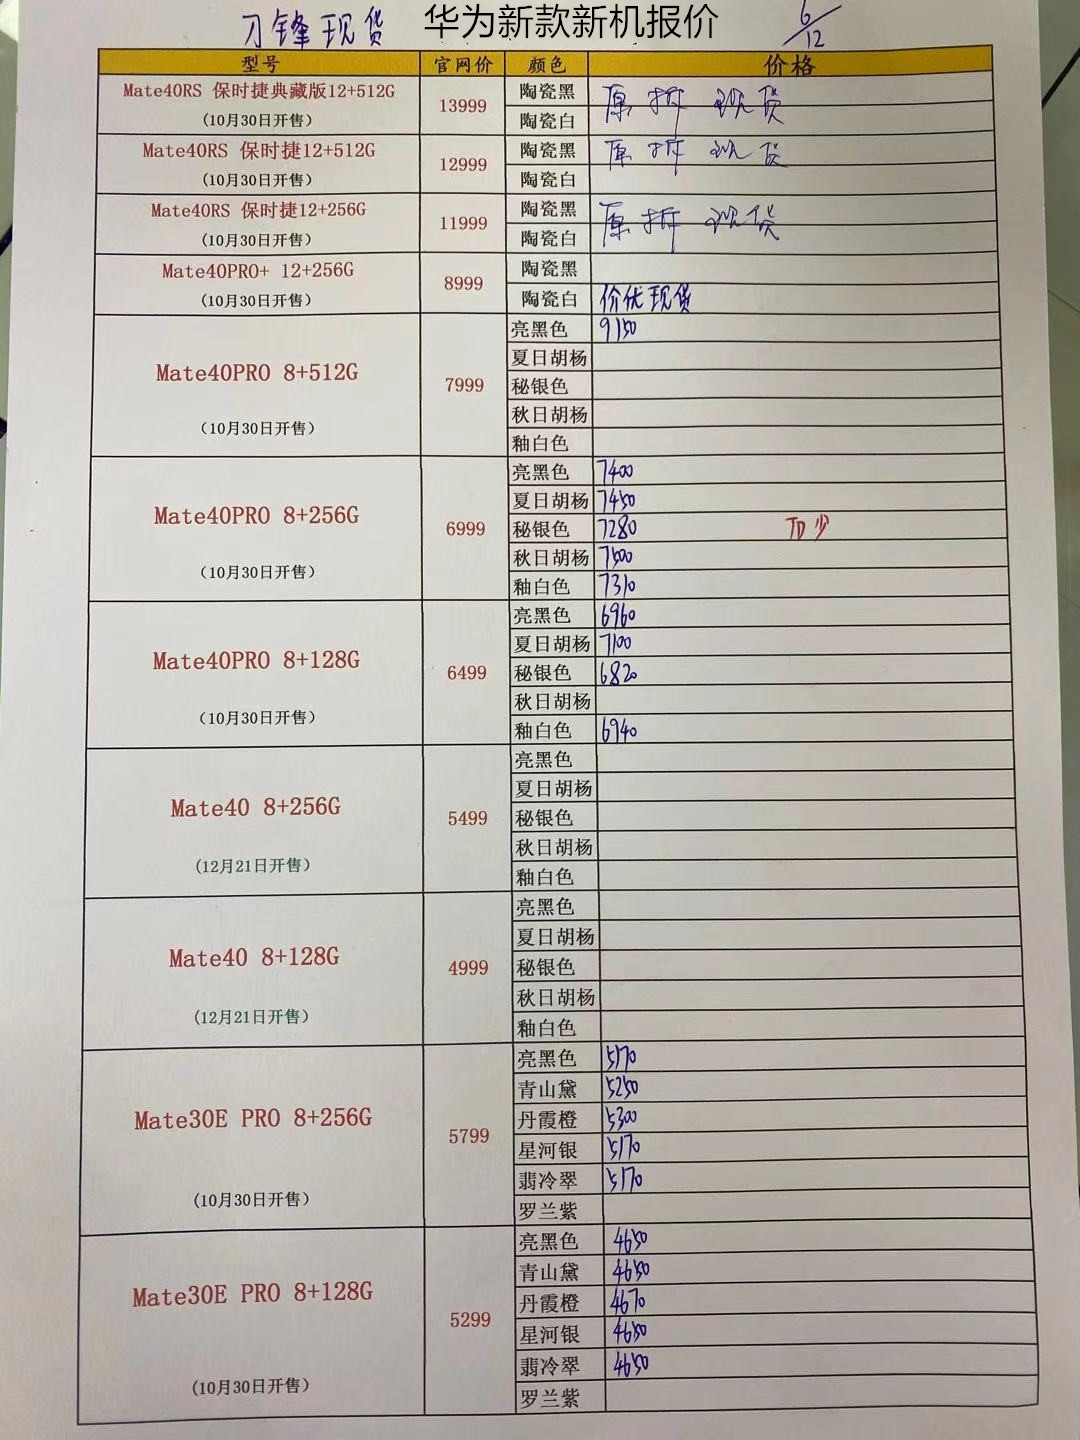 刀锋现货 华为新款新机报价 6/12
型号 官网价 颜色 价格
Mate40RS 保时捷典藏版12+512G
(10月30日开售)
13999
陶瓷黑 原拆现货
陶瓷白
Mate40RS 保时捷12+512G
(10月30日开售)
12999
陶瓷黑 原拆现货
陶瓷白
Mate40RS 保时捷12+256G
(10月30日开售)
11999
陶瓷黑 原拆现货
陶瓷白
Mate40PRO+ 12+256G
(10月30日开售)
8999
陶瓷黑
陶瓷白 价优现货
Mate40PRO 8+512G
(10月30日开售)
7999
亮黑色 9150
夏日胡杨
秘银色
秋日胡杨
釉白色
Mate40PRO 8+256G
(10月30日开售)
6999
亮黑色 7400
夏日胡杨 7450
秘银色 7280 TD少
秋日胡杨 7500
釉白色 7310
Mate40PRO 8+128G
(10月30日开售)
6499
亮黑色 6960
夏日胡杨 7100
秘银色 6820
秋日胡杨
釉白色 6940
Mate40 8+256G
(12月21日开售)
5499
亮黑色
夏日胡杨
秘银色
秋日胡杨
釉白色
Mate40 8+128G
(12月21日开售)
4999
亮黑色
夏日胡杨
秘银色
秋日胡杨
釉白色
Mate30E PRO 8+256G
(10月30日开售)
5799
亮黑色 5170
青山黛 5250
丹霞橙 5300
星河银 5170
翡冷翠 5170
罗兰紫
Mate30E PRO 8+128G
(10月30日开售)
5299
亮黑色 4650
青山黛 4650
丹霞橙 4670
星河银 4650
翡冷翠 4650
罗兰紫